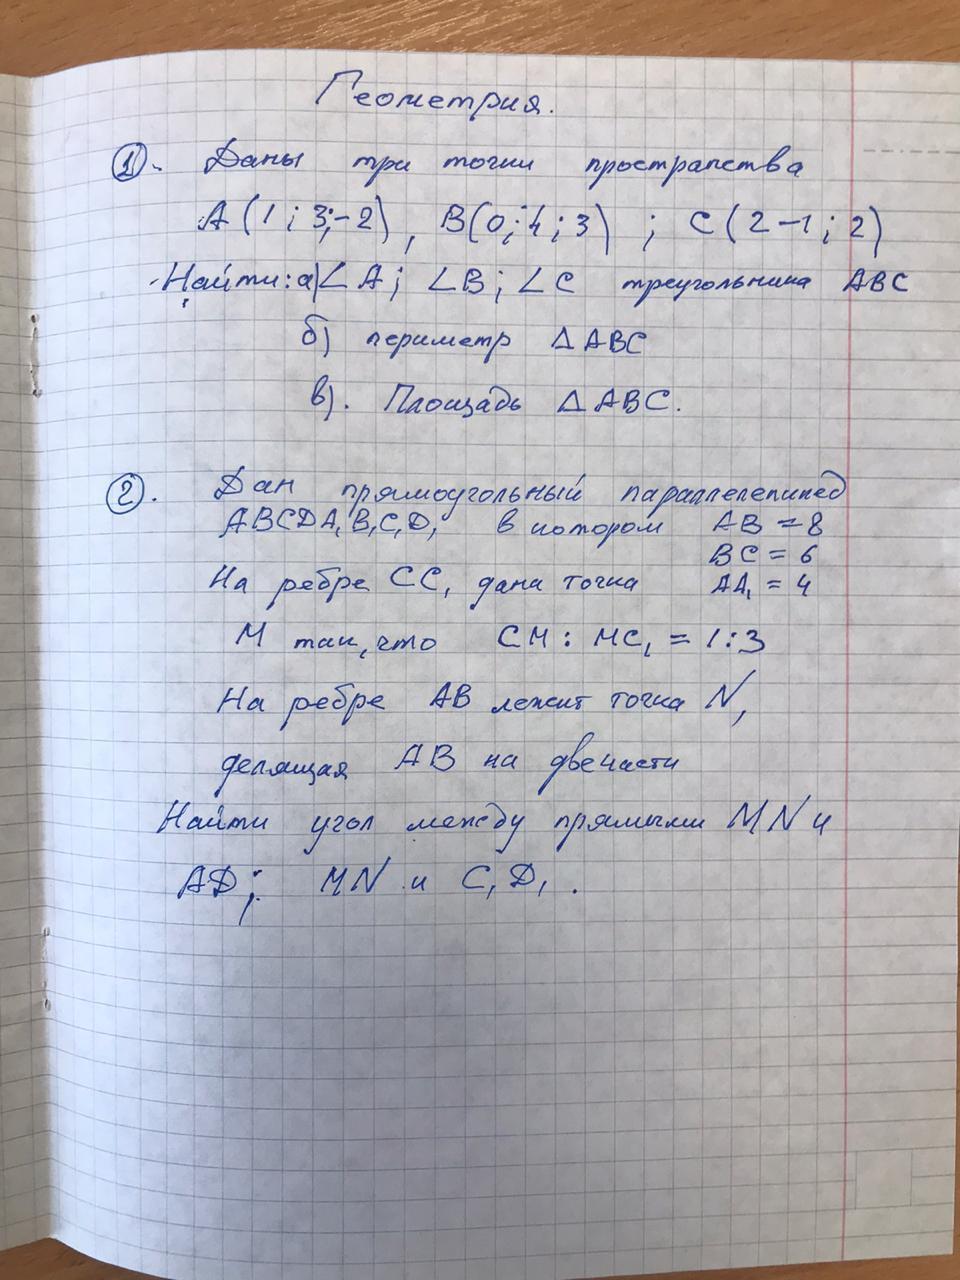 Геометрия.
1). Даны три точки пространства
А(1; 3; -2), В(0; 4; 3); С(2 -1; 2)
Найти: а) ∠А; ∠В; ∠С треугольника АВС
б) периметр ΔАВС
в). Площадь ΔАВС.
2). Дан прямоугольный параллелепипед
АВСDA₁B₁C₁D₁ в котором АВ = 8
ВС = 6
На ребре СС₁ дана точка АА₁ = 4
М так, что СМ : МС₁ = 1:3
На ребре АВ лежит точка N,
делящая АВ на две части
Найти угол между прямыми MN и
AD; MN и C₁D₁.